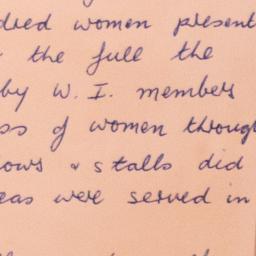 dred women present
the full the
by W. I. members
ss of women through
ows & stalls did
eas were served in